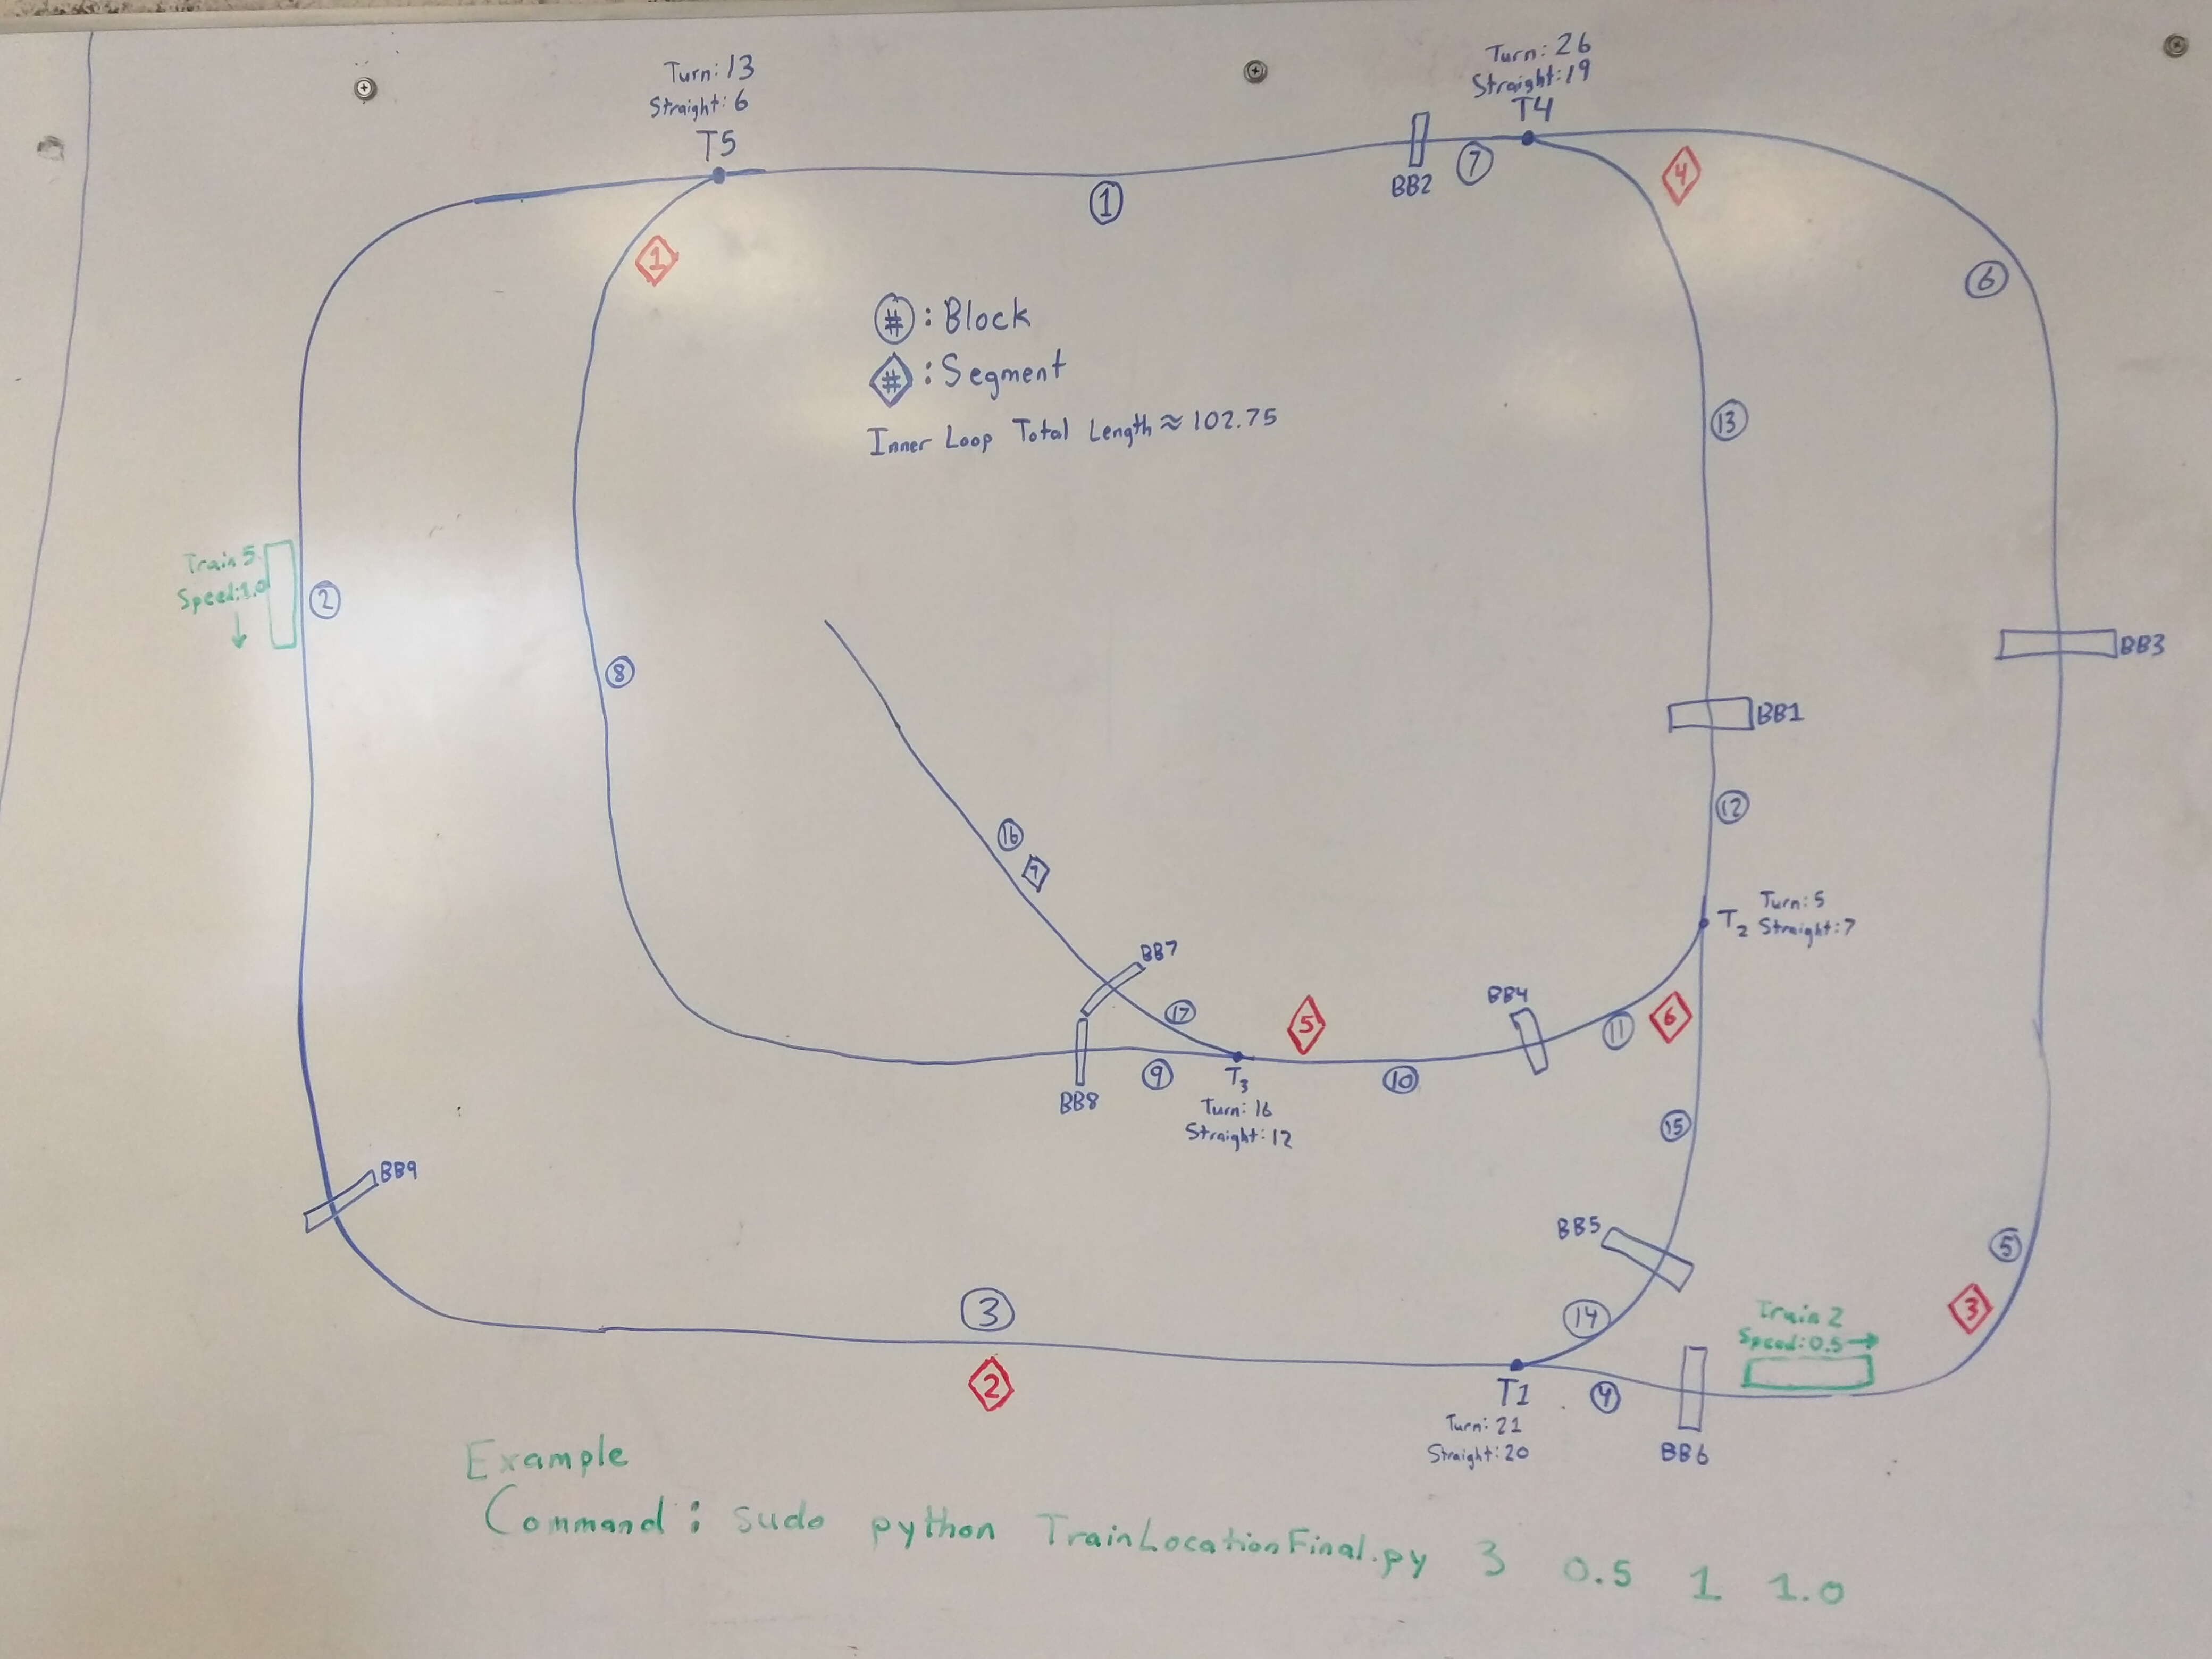 Turn: 13
Straight: 6
T5
Turn: 26
Straight: 19
T4
BB2
7
4
1
1
6
#: Block
#: Segment
Inner Loop Total Length ≈ 102.75
13
Train 5
Speed: 1.0
2
8
BB3
BB1
12
16
T2
Turn: 5
Straight: 7
BB7
17
5
BB4
11
6
9
T3
10
BB8
Turn: 16
Straight: 12
15
BB9
BB5
5
3
14
3
Train 2
Speed: 0.5
2
T1
4
Turn: 21
Straight: 20
BB6
Example
Command: sudo python TrainLocationFinal.py 3 0.5 1 1.0